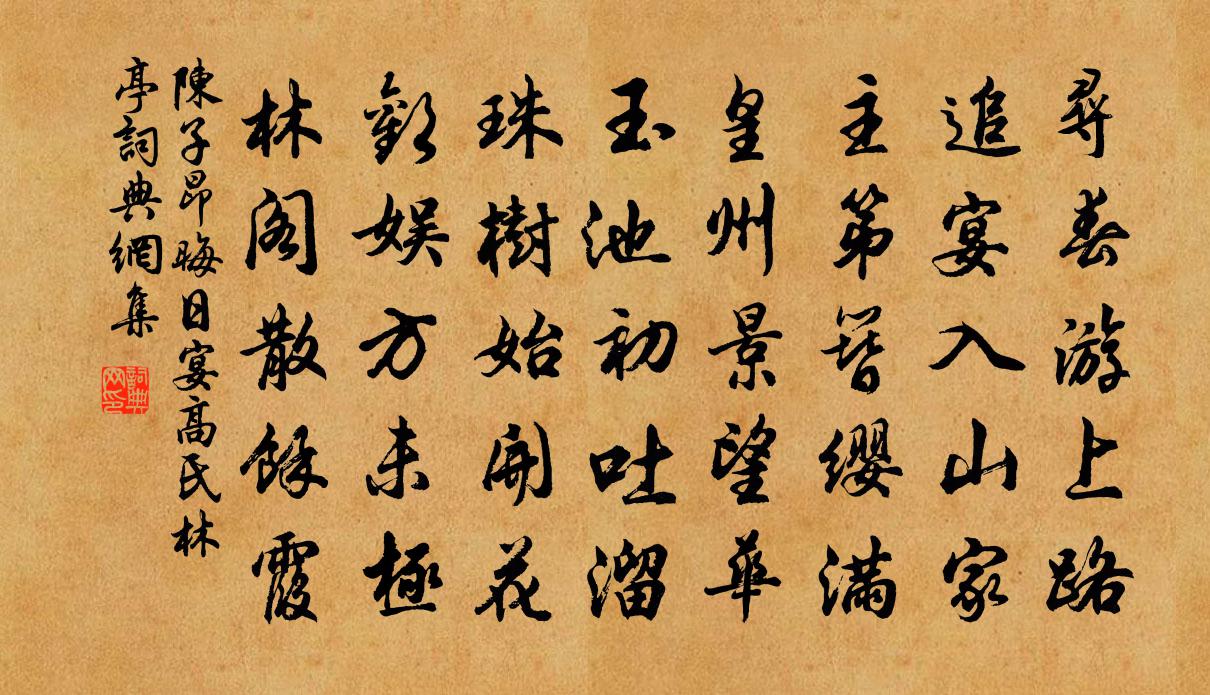 尋春游上路
追宴入山家
主第簪纓滿
皇州景望華
玉池初吐溜
珠樹始開花
歡娛方未極
林閣散餘霞
陳子昂晦日宴高氏林
亭詞典網集
詞典
网印